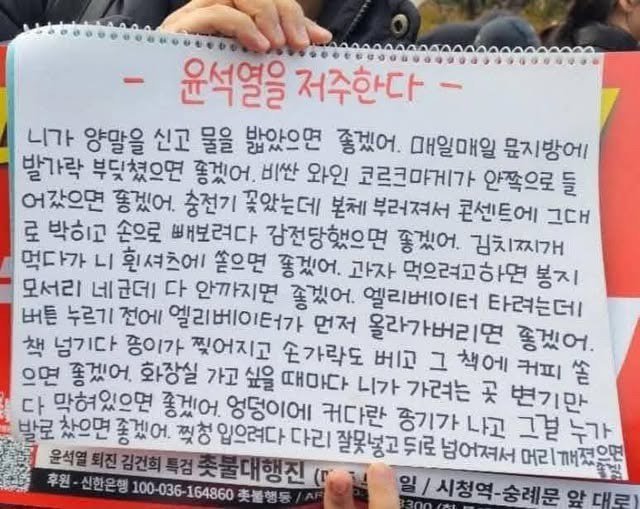 - 윤석열을 저주한다 -
니가 양말을 신고 물을 밟았으면 좋겠어. 매일매일 문지방에
발가락 부딪쳤으면 좋겠어. 비싼 와인 코르크마게가 안쪽으로 들
어갔으면 좋겠어. 충전기 꽂았는데 본체 부러져서 콘센트에 그대
로 박히고 손으로 빼보려다 감전당했으면 좋겠어. 김치찌개
먹다가 니 흰셔츠에 쏟으면 좋겠어. 과자 먹으려고하면 봉지
모서리 네군데 다 안까지면 좋겠어. 엘리베이터 타려는데
버튼 누르기 전에 엘리베이터가 먼저 올라가버리면 좋겠어.
책 넘기다 종이가 찢어지고 손가락도 베고 그 책에 커피 쏟
으면 좋겠어. 화장실 가고 싶을 때마다 니가 가려는 곳 변기만
다 막혀있으면 좋겠어. 엉덩이에 커다란 종기가 나고 그걸 누가
발로 찼으면 좋겠어. 찢청 입으려다 다리 잘못넣고 뒤로 넘어져서 머리 깨졌으면
좋겠어
윤석열 퇴진 김건희 특검 촛불대행진
일 / 시청역-숭례문 앞 대로)
후원 - 신한은행 100-036-164860 촛불행동 / AR
3300